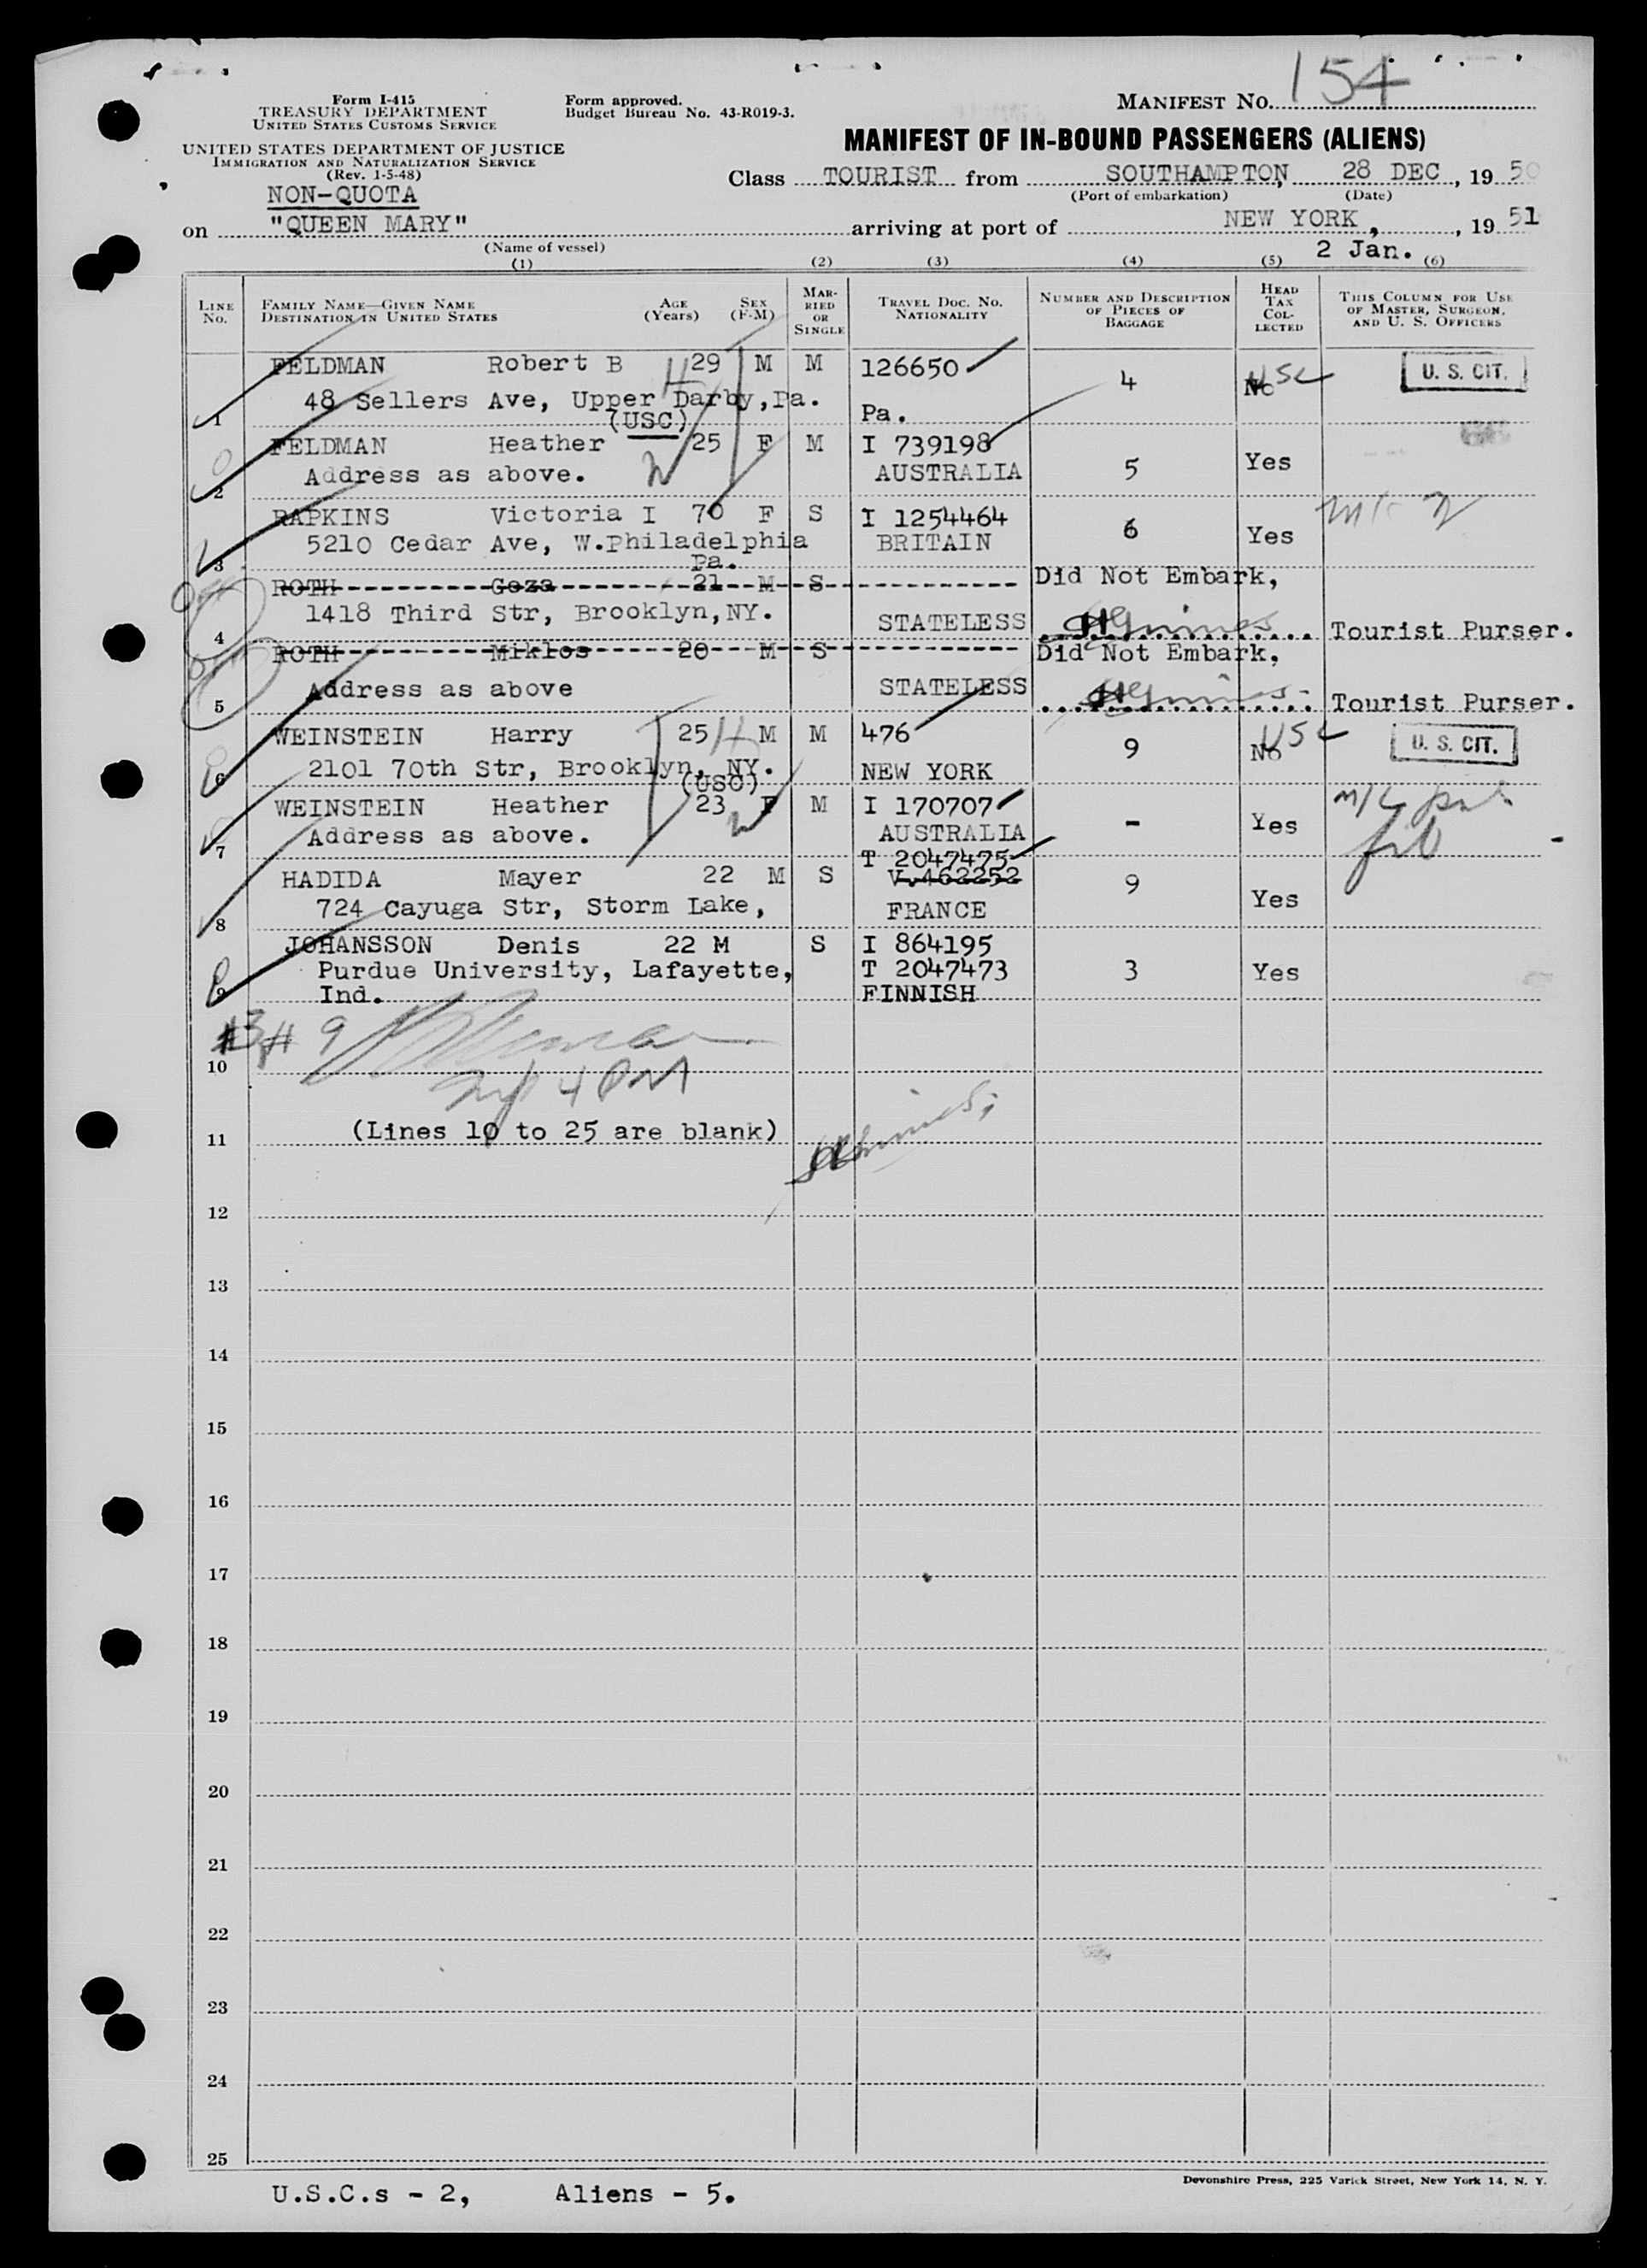 154
Form I-415
TREASURY DEPARTMENT
UNITED STATES CUSTOMS SERVICE
Form approved.
Budget Bureau No. 43-R019-3.
MANIFEST NO.
UNITED STATES DEPARTMENT OF JUSTICE
IMMIGRATION AND NATURALIZATION SERVICE
(Rev. 1-5-48)
MANIFEST OF IN-BOUND PASSENGERS (ALIENS)
NON-QUOTA
Class TOURIST from SOUTHAMPTON, 28 DEC, 1950
(Port of embarkation) (Date)
on "QUEEN MARY" arriving at port of NEW YORK, , 1951
(Name of vessel) 2 Jan.
(1) (2) (3) (4) (5) (6)
LINE NO. FAMILY NAME—GIVEN NAME DESTINATION IN UNITED STATES AGE (Years) SEX (F-M) MARRIED OR SINGLE TRAVEL DOC. NO. NATIONALITY NUMBER AND DESCRIPTION OF PIECES OF BAGGAGE HEAD TAX COLLECTED THIS COLUMN FOR USE OF MASTER, SURGEON, AND U. S. OFFICERS
FELDMAN Robert B H 29 M M 126650 4 No USC U. S. CIT.
1 48 Sellers Ave, Upper Darby,Pa. Pa.
(USC)
FELDMAN Heather 25 F M I 739198 5 Yes
2 Address as above. W AUSTRALIA
RAPKINS Victoria I 70 F S I 1254464 6 Yes
3 5210 Cedar Ave, W.Philadelphia BRITAIN
Pa.
ROTH Geza 21 M S Did Not Embark,
4 1418 Third Str, Brooklyn,NY. STATELESS Tourist Purser.
ROTH Miklos 20 M S Did Not Embark,
5 Address as above STATELESS Tourist Purser.
WEINSTEIN Harry 25 H M M 476 9 No USC U. S. CIT.
6 2101 70th Str, Brooklyn, NY. NEW YORK
(USC)
WEINSTEIN Heather 23 F M I 170707 - Yes
7 Address as above. W AUSTRALIA
T 2047475
HADIDA Mayer 22 M S V.462252 9 Yes
8 724 Cayuga Str, Storm Lake, FRANCE
JOHANSSON Denis 22 M S I 864195
9 Purdue University, Lafayette, T 2047473 3 Yes
Ind. FINNISH
# 9
10
4 PM
11 (Lines 10 to 25 are blank)
12
13
14
15
16
17
18
19
20
21
22
23
24
25
Devonshire Press, 225 Varick Street, New York 14, N. Y.
U.S.C.s - 2, Aliens - 5.